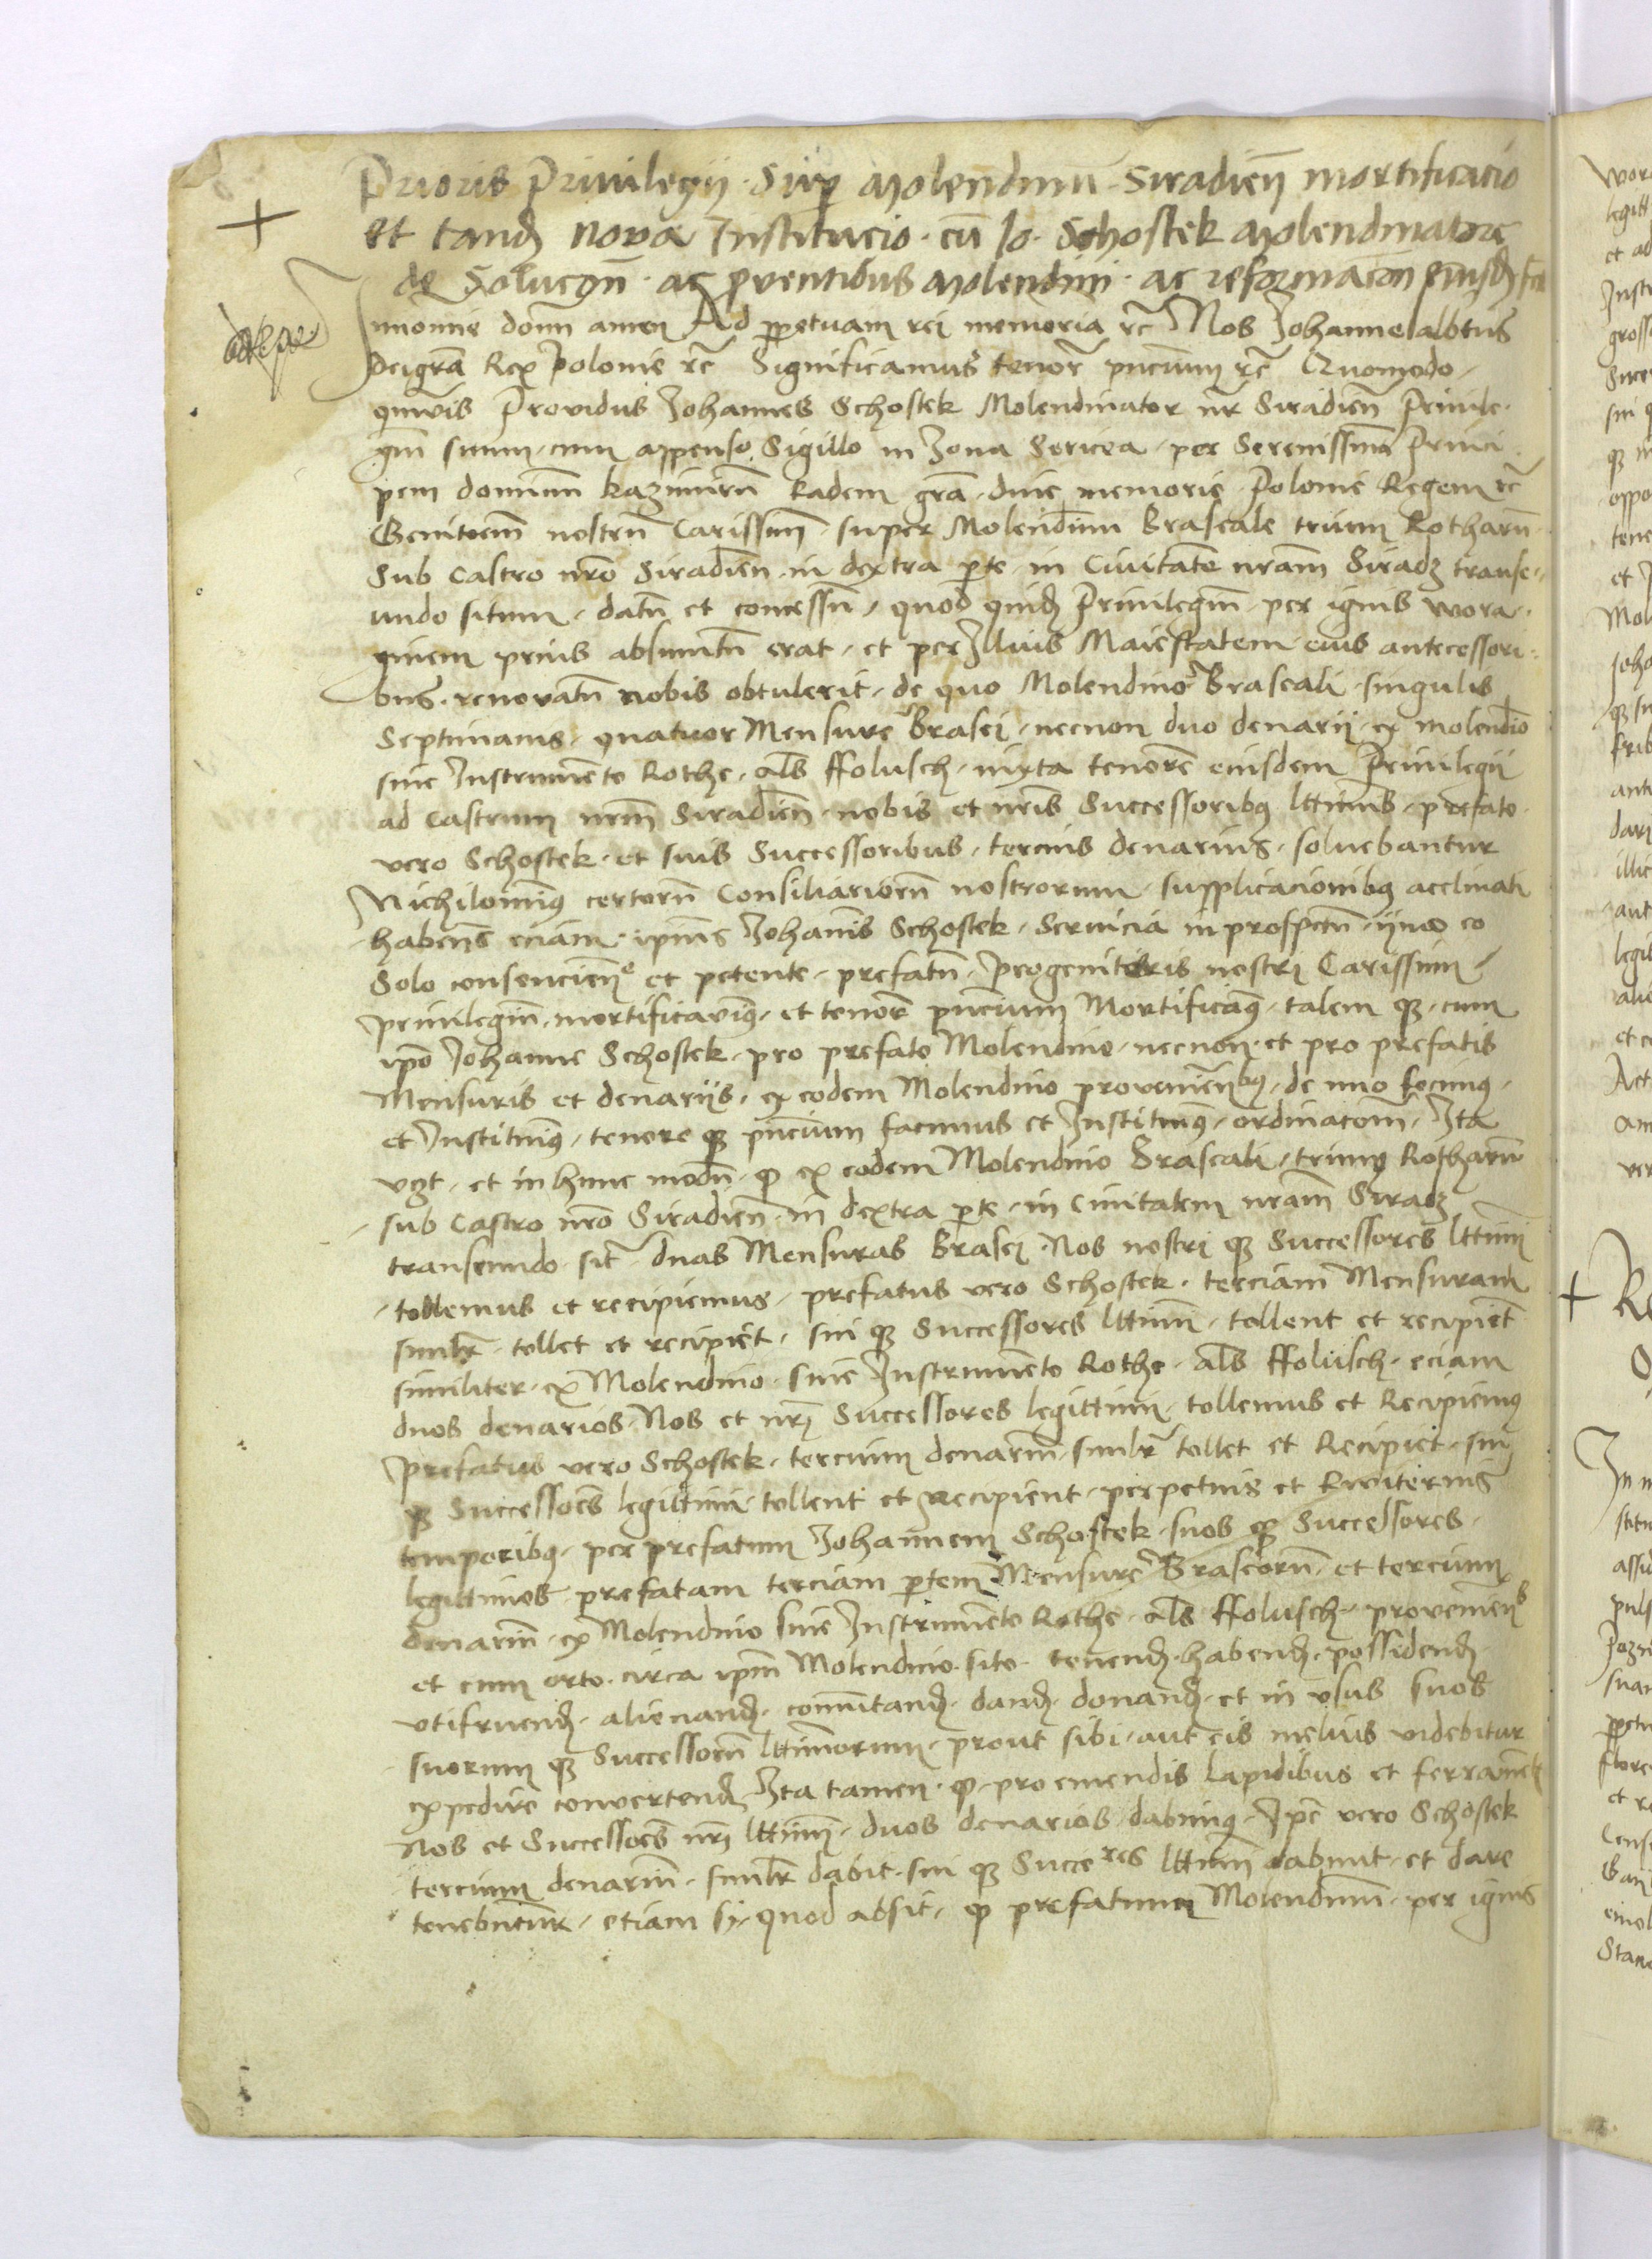 Prioris Privilegii. Sup Molendinū. Siradieñ mortificacio
et tandē nova Institucio. cū Io. Schostek Molendinatore
de Solucoñ. ac pventibus Molendini. ac reformacioñ eiusdē
Innomie domī amen Ad ppetuam rei memoriā rc̄ Nos Johannes albtus
Deigrā Rex Polonie rc̄ Significamus tenor̄ pn̄cium rc̄ Quomodo
qmvis Providus Johannes Schostek Molendinator nr̄ Siradieñ Privile
gm̄ suum, cum appenso Sigillo in Zona Sericea, per Serenissimū Princi
pem dominum kazimirū Eadem grā, dive memorie, Polonie Regem rc̄
Genitorem̄ nostrū Carissimū, super Molendinum Braseale trium Rotharū
Sub Castro nr̄o Siradieñ, in dextra pte, in Civitatem nr̄am Siradz transe
undo situm, datū et concessū, quod quidē Privilegm̄ per ignis wora
ginem prius absumtū erat, et per Illius Maiestatem eius antecessori
bus, renovatū nobis obtulerit, de quo Molendino Braseali, singulis
Septimanis, quatuor Mensure Brasei, necnon duo denarii, ex molendio
sive Instrumento Rothe, als̄ ffolusch, iuxta tenorē eiusdem Privilegii
ad Castrum nr̄m Siradieñ, nobis et nr̄is Successoribꝫ lttimis, prefato
vero Schostek, et suis Successoribus, tercius denarius, solvebantur
Nichilominꝫ certorū Consiliariorū nostrorum, supplicacionibꝫ acclinati
habens eciam, ipius Johanīs Schostek, Servicia in prospectū, ymo eo
Solo consencien̄e et petente, prefatū, Progenitoris nostri Carissimi
Privilegm̄, mortificavimꝫ, et tenor̄ pn̄cium Mortificamꝫ, talem qꝫ, cum
ipo Johanne Schostek, pro prefato Molendino, necnon et pro prefatis
Mensuris et denariis, ex eodem Molendino provenien̄ibꝫ, de novo fecimꝫ,
et Instituimꝫ, tenore qꝫ pn̄cium facimus et Instituimꝫ, ordinacom̄, Ita
vꝫt, et in hunc modū, qꝫ ex eodem Molendino Braseali, trium Rotharū
sub Castro nr̄o Siradieñ, in dextra pte, in Civitatem nr̄am Siradz
transeundo, sit̄, duas Mensuras Brasei, Nos nostri qꝫ Successores lttimi
tollemus et recipiemus, prefatus vero Schostek, terciam Mensuram
similr̄, tollet et recipiet, sui qꝫ Successores lttimi, tollent et recipiēt
similiter, ex Molendino, sive Instrumento Rothe, als̄ ffolusch, eciam
duos denarios, Nos et nr̄i Successores legittimi, tollemus et Recipiemꝫ
Prefatus vero Schostek, tercium denarium̄, similr̄ tollet et Recipiet, sui
qꝫ Successores legittimi, tollent et Recipient, perpetuis et Eviternis
temporibꝫ, per prefatum Johannem Schostek, suos qꝫ Successores
legittimos, prefatam terciam ptem Mensure Braseorū, et tercium
denarium̄, ex Molendino sive Instrumento Rothe, als̄ ffolusch, provenien̄s
et cum orto, circa ipm̄ Molendino, sito, tenendū, habendū, possidendū
utifruendū, alienandū, commutandū, dandū, donandū, et in usus suos
suorum qꝫ Successorū lttimorum, prout sibi, aut eis melius videbitur
expedire convertendū, Ita tamen, qꝫ, pro emendis Lapidibus et ferramētis
Nos et Successores nr̄i lttimi, duos denarios dabimꝫ, Ipe vero Schostek
tercium denarium̄, similr̄ dabit, sui qꝫ Succeres lttimi dabunt, et dare
tenebuntur, etiam si, quod absit, qꝫ prefatum Molendinum̄, per ignis